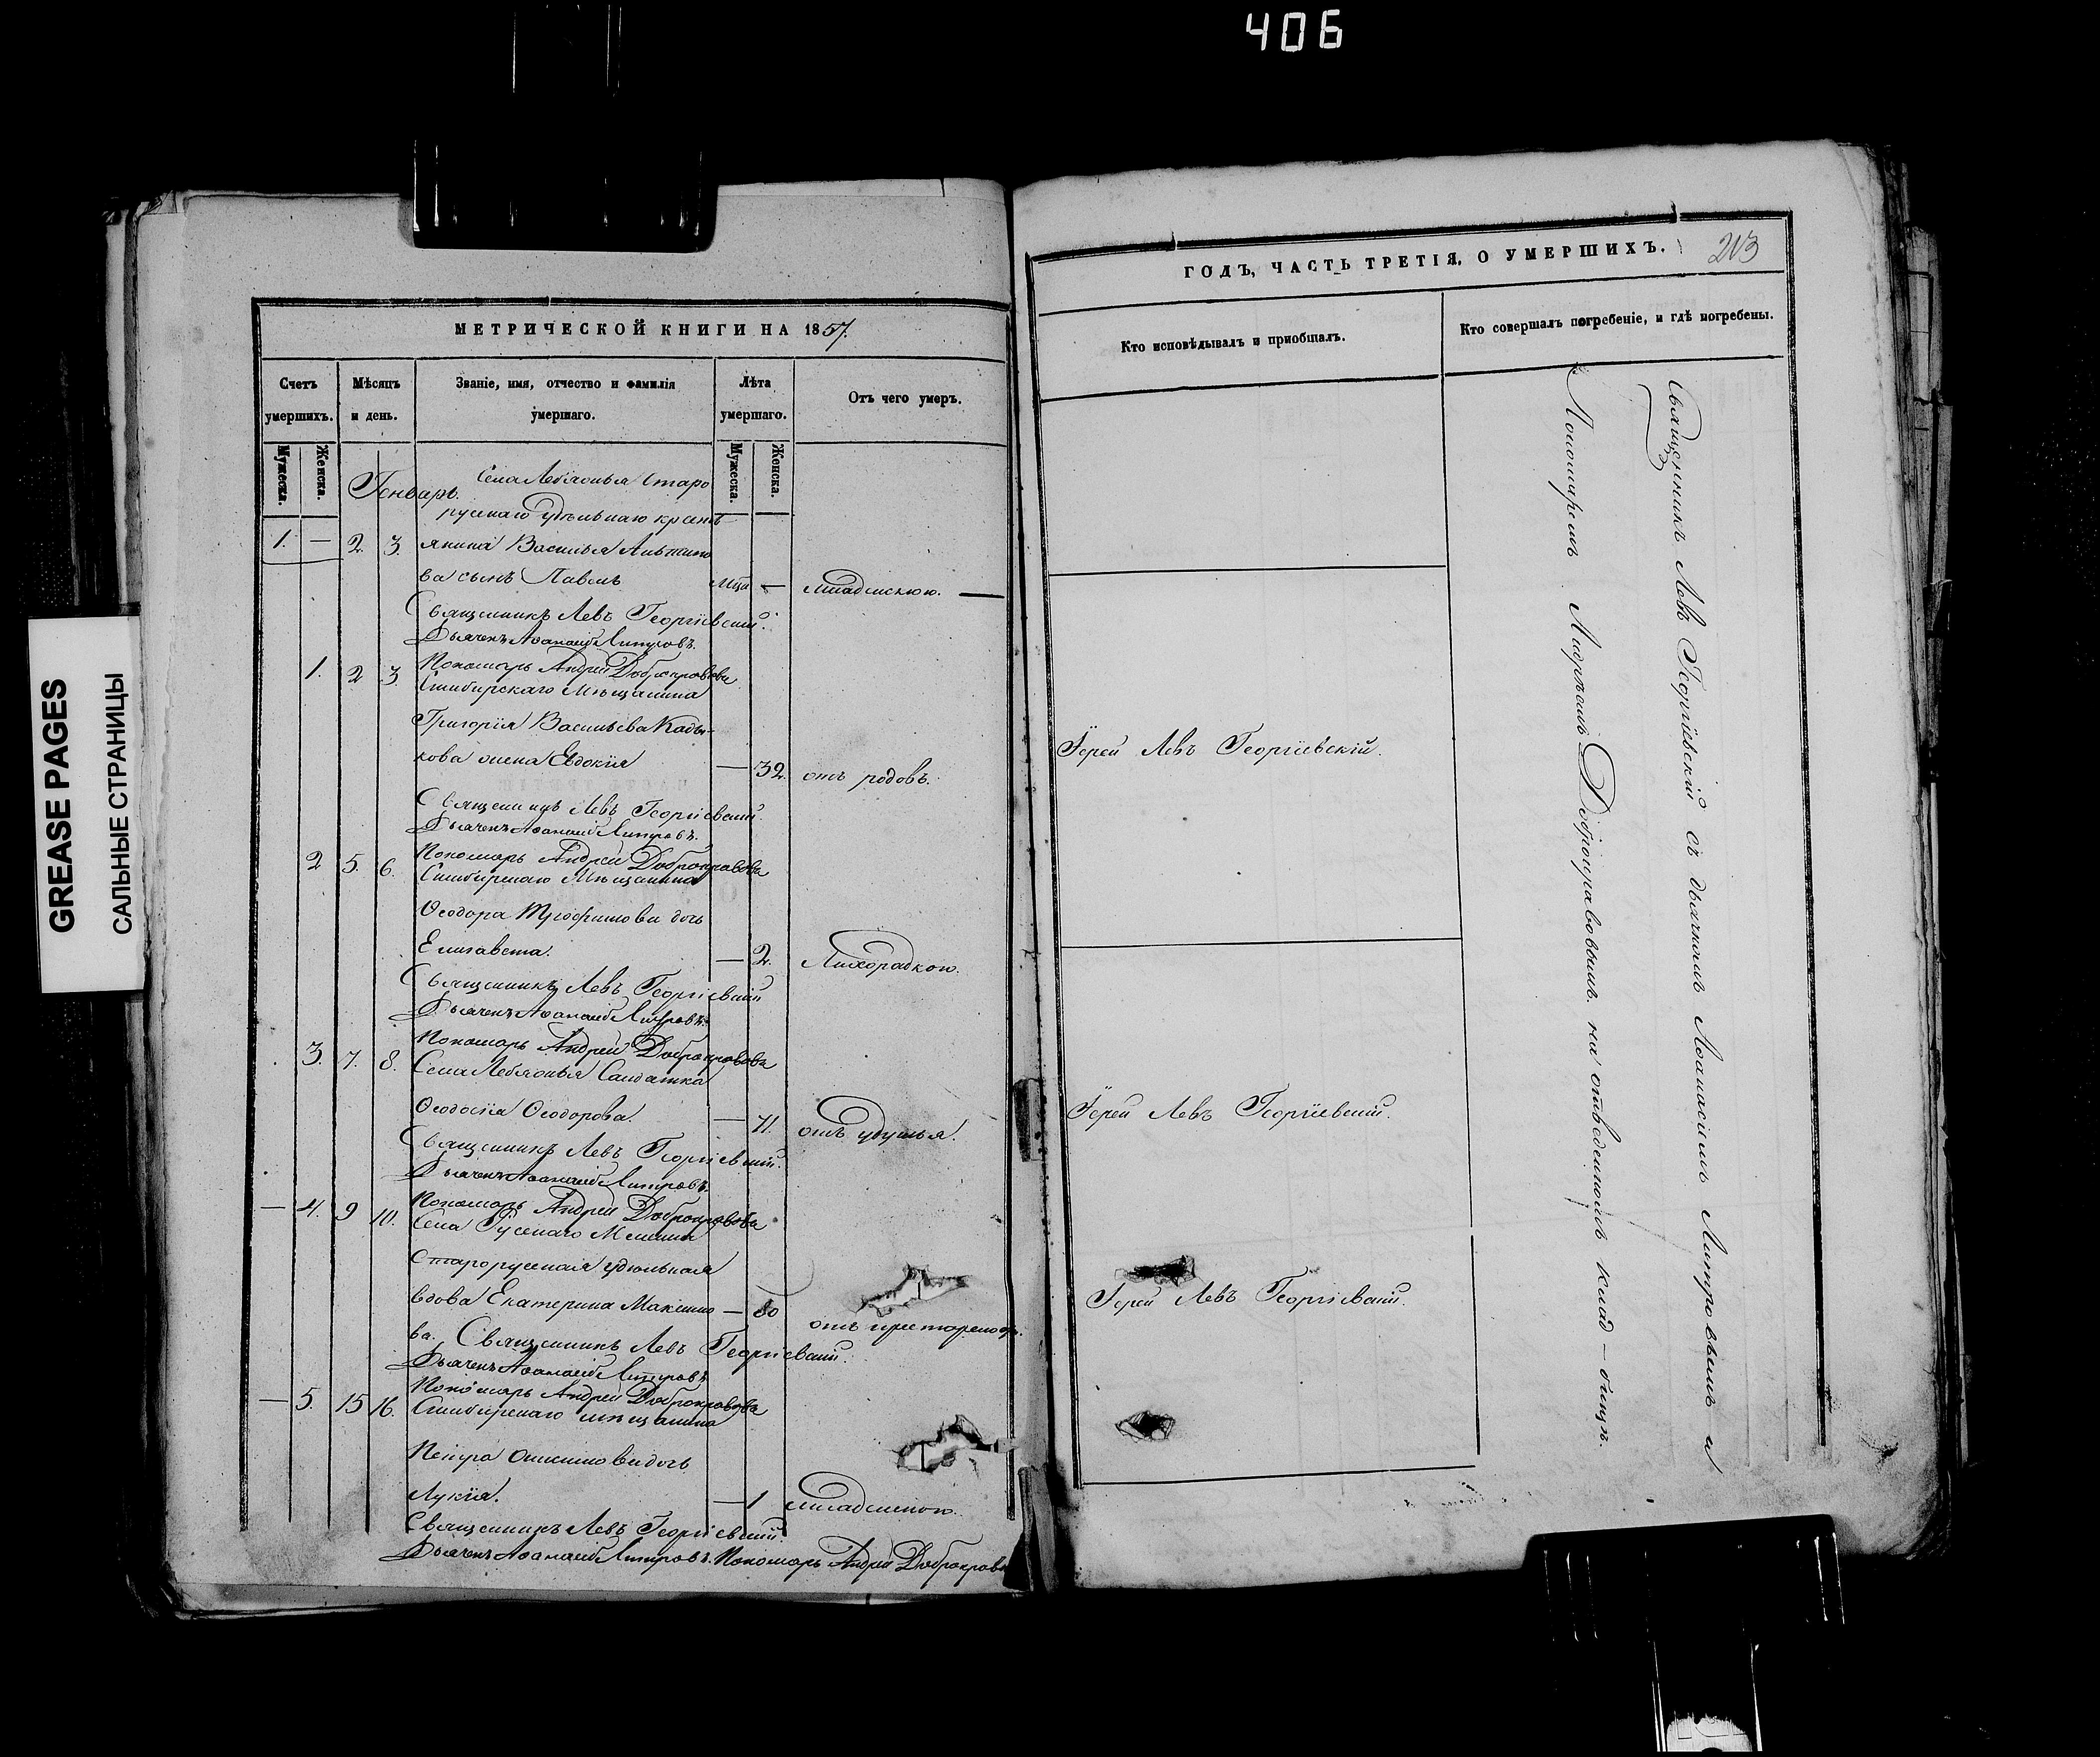 406
GREASE PAGES
САЛЬНЫЕ СТРАНИЦЫ
МЕТРИЧЕСКОЙ КНИГИ НА 1857.
Счетъ умершихъ.
Мужеска.
Женска.
Мѣсяцъ и день.
Званіе, имя, отчество и фамилія умершаго.
Лѣта умершаго.
Мужеска.
Женска.
Отъ чего умеръ.
Генварь.
Села Лебяжья Старо
русскаго удѣльнаго кресть
1. — 2. 3. янина Василья
ва сынъ Павелъ — младенскою. —
Священникъ Левъ Георгіевскій.
Дьячекъ Аѳанасій
Пономарь Андрей Доброправова
1. 2 3. Симбирскаго Мѣщанина
Григорія Васильева
кова жена Евдокія — 32. отъ родовъ.
Священникъ Левъ Георгіевскій.
Дьячекъ Аѳанасій
Пономарь Андрей Доброправова
2 5. 6. Симбирскаго Мѣщанина
Ѳеодора Трофимова дочь
Елизавета. — 2. Лихорадкою.
Священникъ Левъ Георгіевскій
Дьячекъ Аѳанасій
Пономарь Андрей Доброправова
3. 7. 8. Села Лебяжья Салдатка
Ѳеодосія Ѳеодорова. — 71. отъ удушья.
Священникъ Левъ Георгіевскій.
Дьячекъ Аѳанасій
Пономарь Андрей Доброправова
— 4. 9 10. Села Русскаго
Старорусская удѣльная
вдова Екатерина Максимо — 80
ва. Священникъ Левъ Георгіевскій.
Дьячекъ Аѳанасій
Пономарь Андрей Доброправова
— 5. 15 16. Симбирскаго мѣщанина
Петра Онисимова дочь
Лукія. — 1 младенскою.
Священникъ Левъ Георгіевскій
Дьячекъ Аѳанасій Пономарь Андрей
ГОДЪ, ЧАСТЬ ТРЕТІЯ, О УМЕРШИХЪ.
213
Кто исповѣдывалъ и пріобщалъ.
Кто совершалъ погребеніе, и гдѣ погребены.
Іерей Левъ Георгіевскій.
Іерей Левъ Георгіевскій.
Іерей Левъ Георгіевскій.
Священникъ Левъ Георгіевскій съ дьячкомъ Аѳанасіемъ и
Пономаремъ Андреемъ Доброправовымъ. на отведенномъ клад-бищѣ.